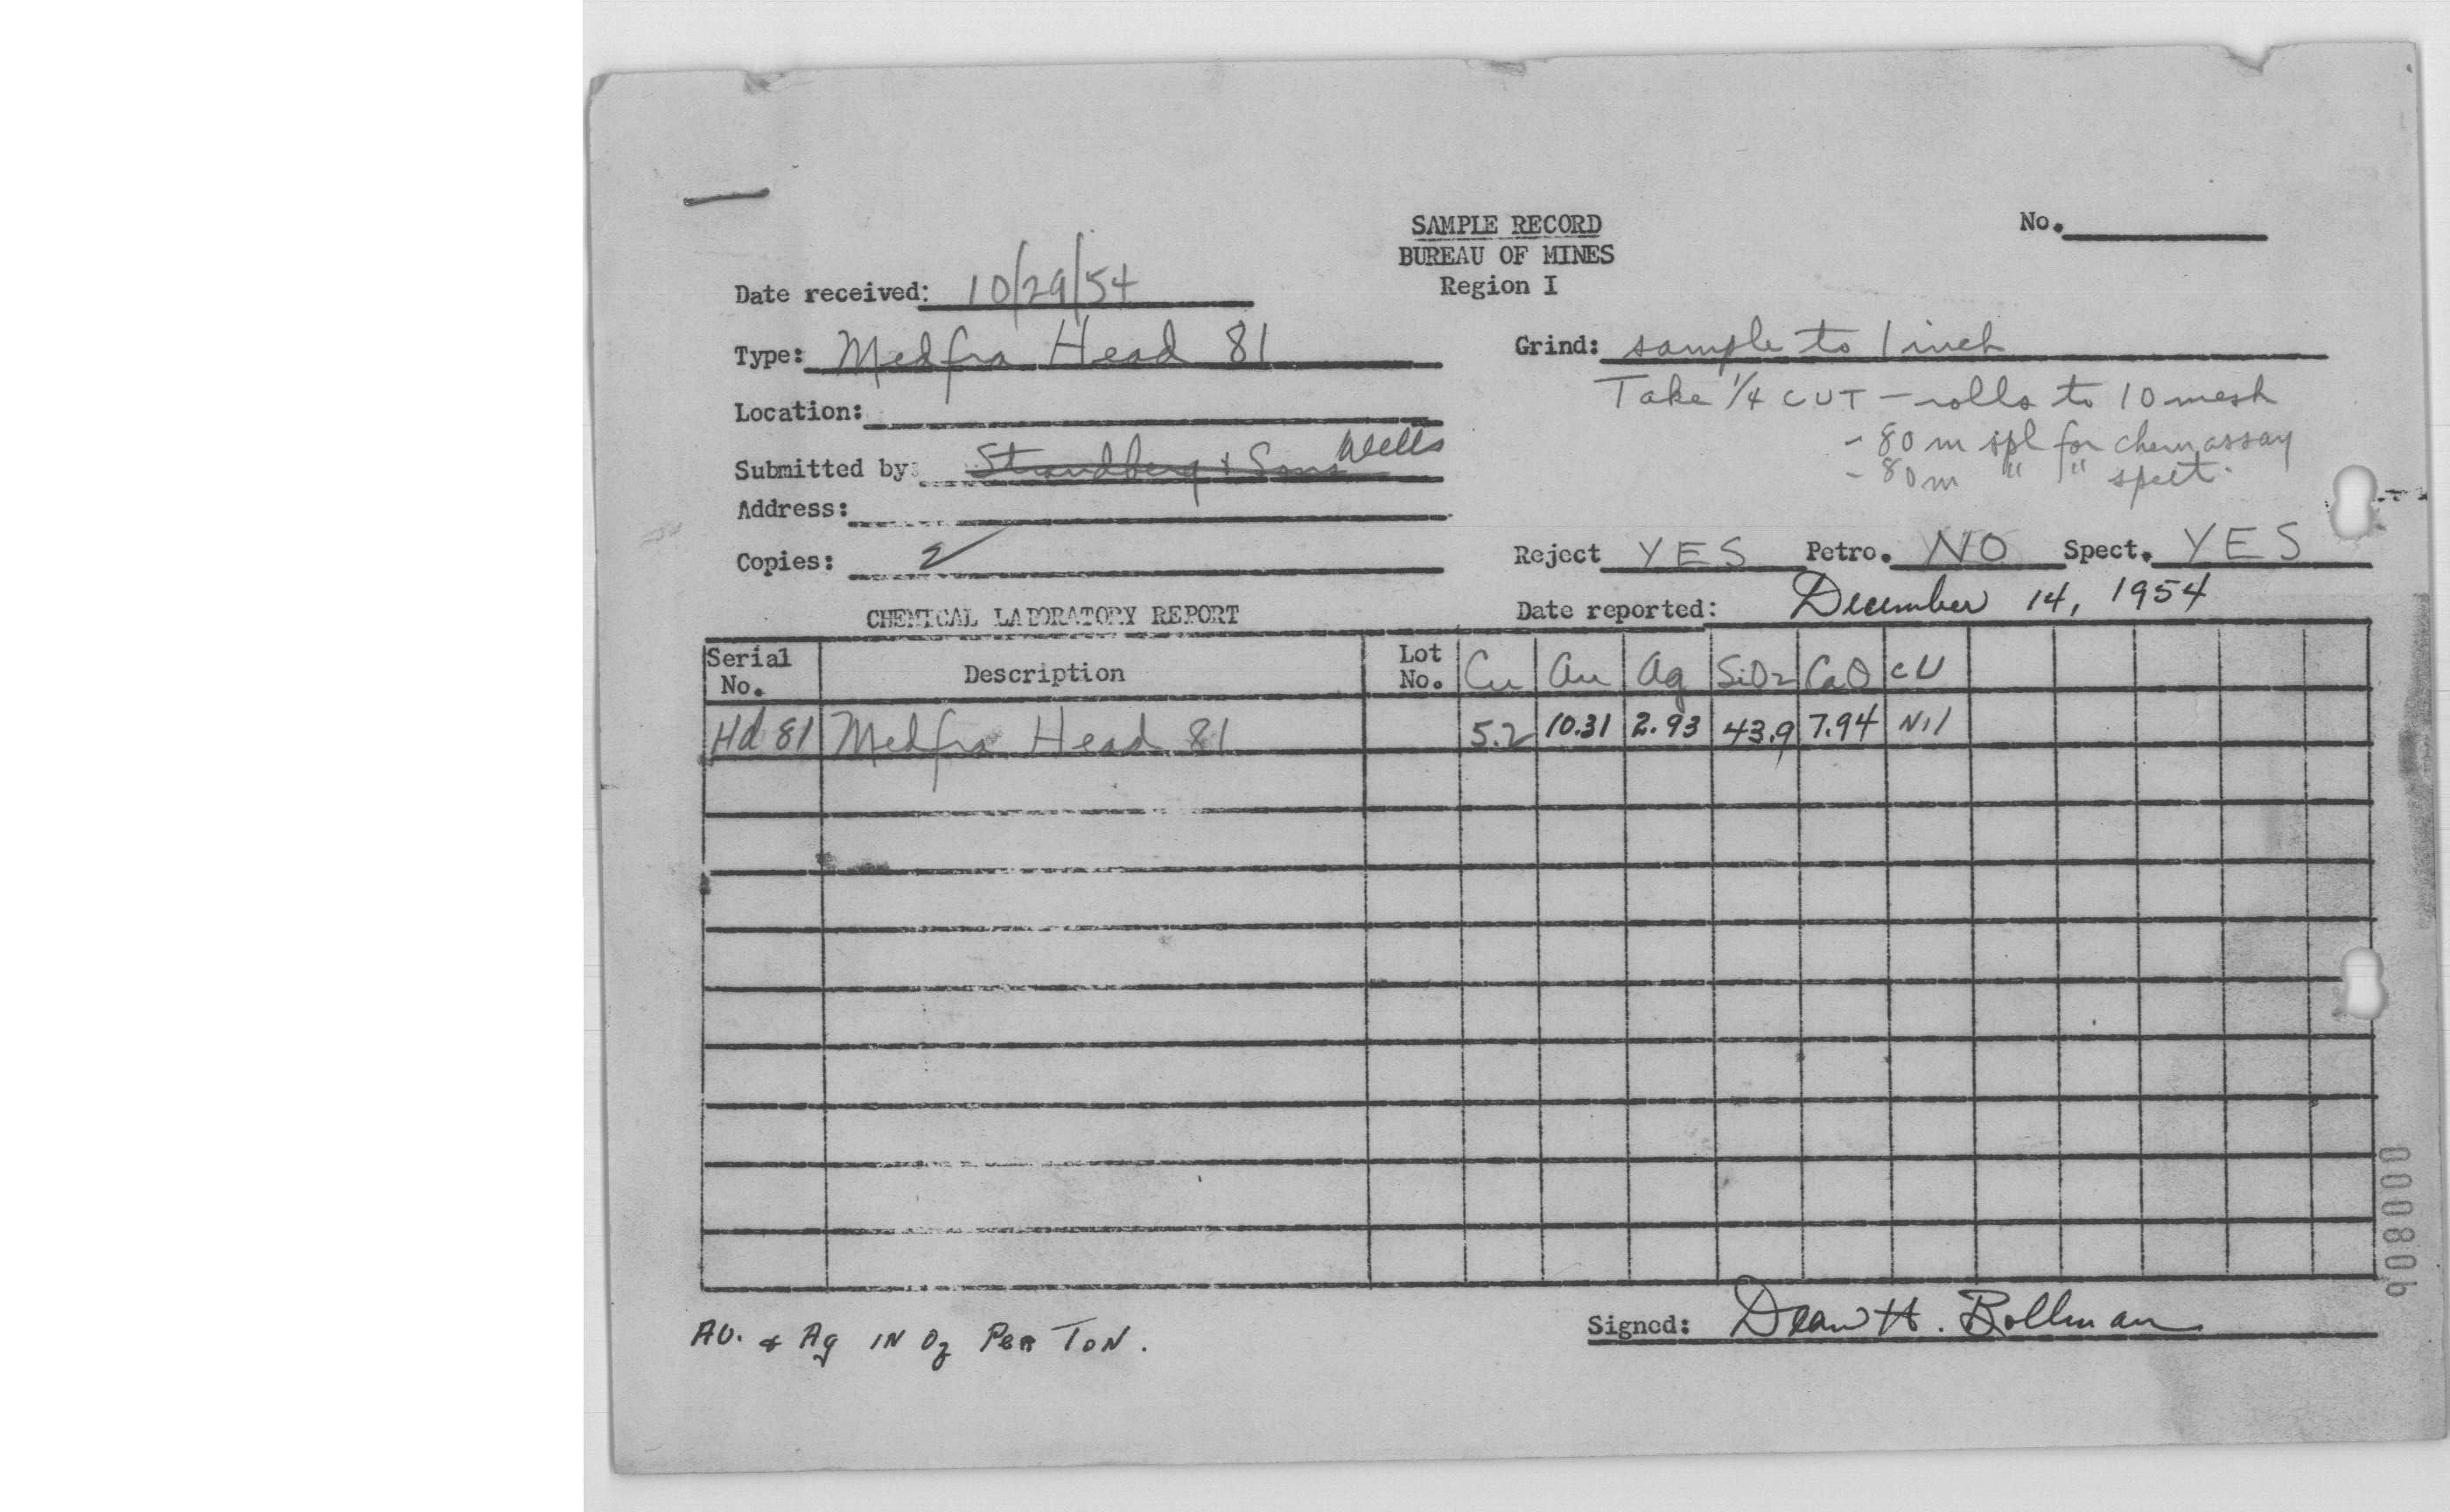 SAMPLE RECORD
No.
BUREAU OF MINES
Region I
Date received: 10/29/54
Type: Medfra Head 81
Grind: sample to 1 inch
Take 1/4 CUT - rolls to 10 mesh
- 80 m spl for chem assay
- 80 m " " spect.
Location:
Submitted by: Strandberg & Sons Wells
Address:
Copies: 2
Reject YES Petro. NO Spect. YES
CHEMICAL LABORATORY REPORT
Date reported: December 14, 1954
Serial No. Description Lot No. Cu Au Ag SiO2 CaO eU
Hd 81 Medfra Head 81 5.2 10.31 2.93 43.9 7.94 Nil
Au. & Ag IN Oz PER TON.
Signed: Dean H. Bollman
000806